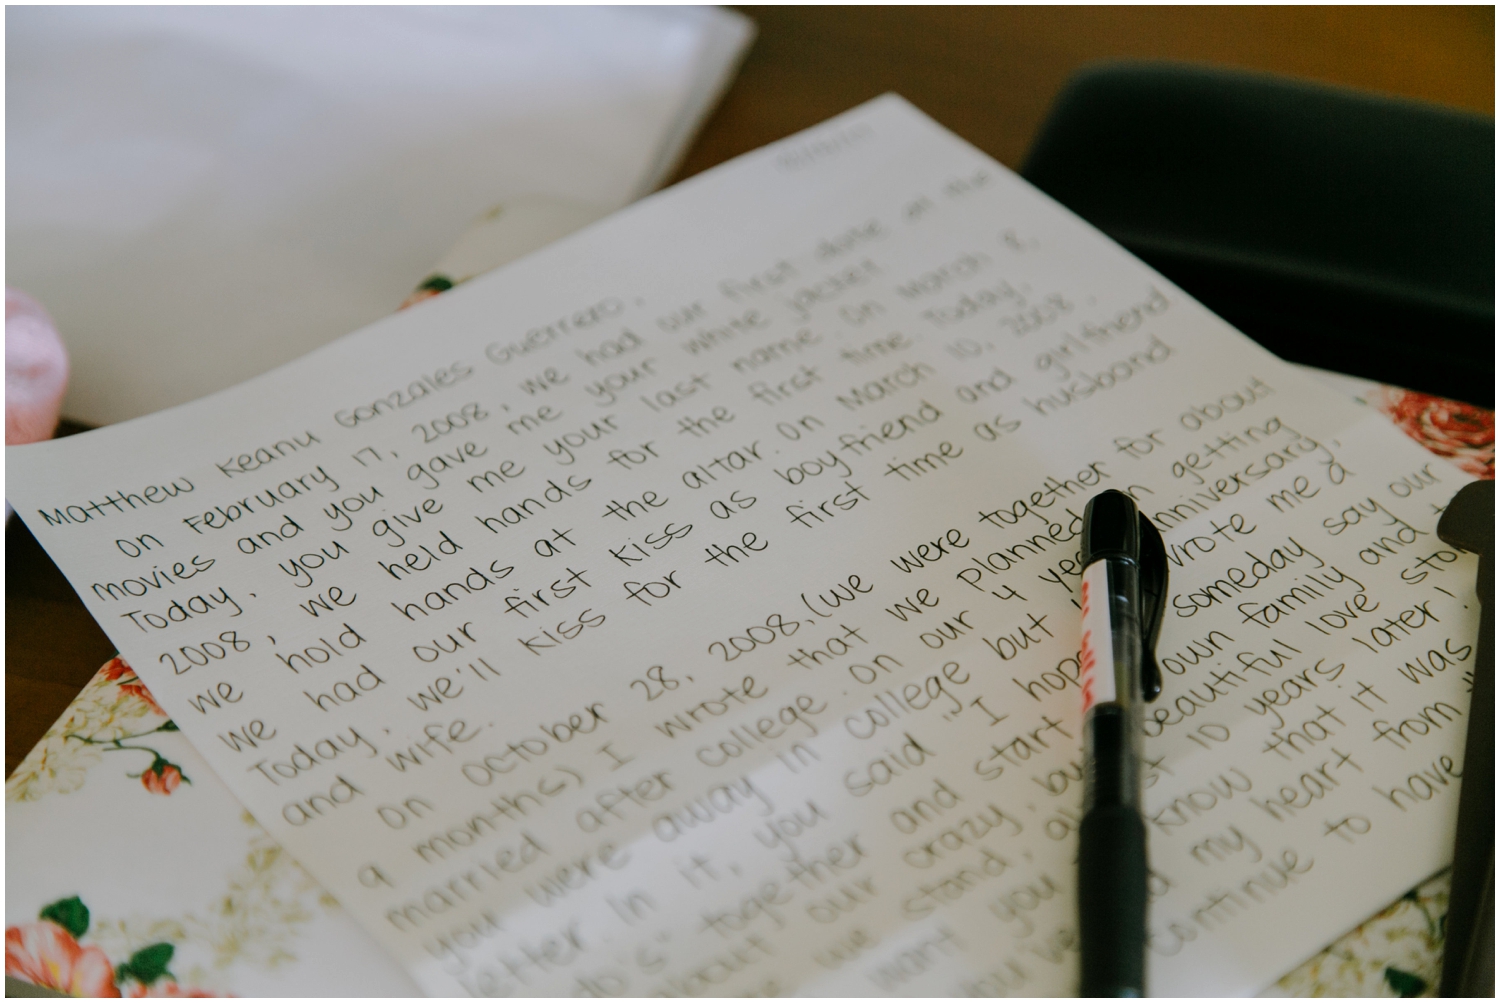 Matthew Keanu Gonzales Guerrero,
On February 17, 2008, we had our first date at the
movies and you gave me your white jacket.
Today, you give me your last name. On March 8,
2008, we held hands for the first time. Today,
we hold hands at the altar. On March 10, 2008.
we had our first kiss as boyfriend and girlfriend
Today, we'll kiss for the first time as husband
and wife.
On October 28, 2008, (we were together for about
9 months) I wrote that we planned on getting
married after college. On our 4 year anniversary,
you were away in college but wrote me a
letter. In it, you said "I hope someday say our
"I do's" together and start own family and
about our crazy, but beautiful love story
we stand, almost 10 years later!
want you know that it was
you've my heart from
continue to have